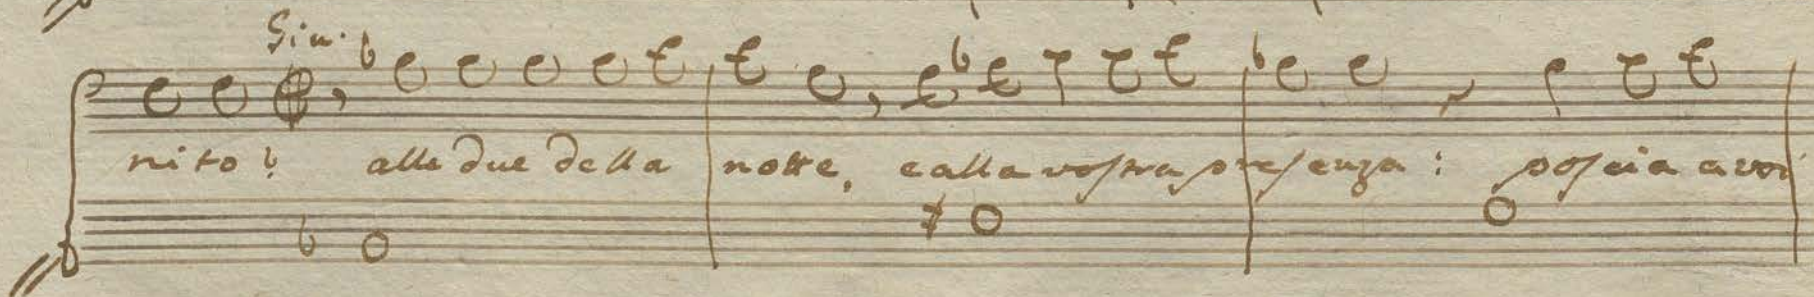 Giu.
nito? alle due della notte, e alla vostra presenza: poscia a voi